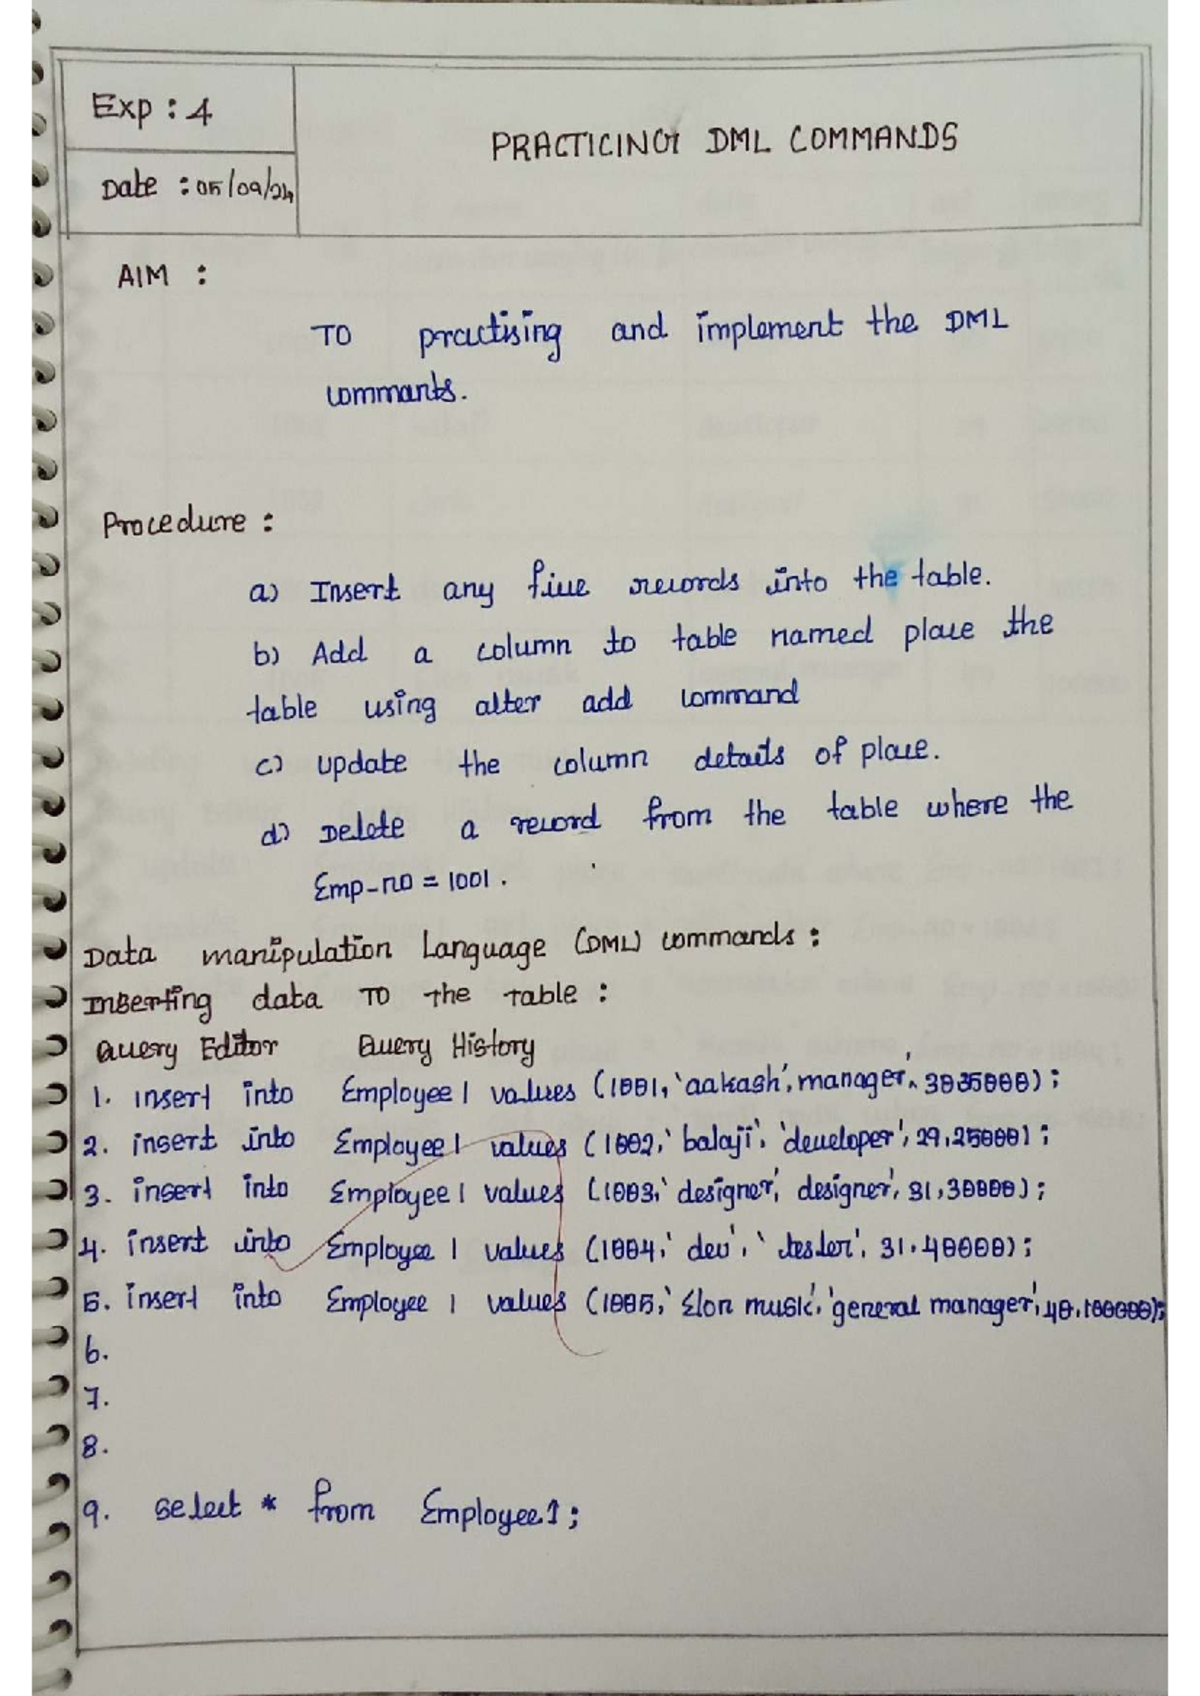 Exp : 4
PRACTICING DML COMMANDS
Date : 05/09/24
AIM :
TO practising and implement the DML
commants.
Procedure :
a) Insert any five records into the table.
b) Add a column to table named place the
table using alter add command
c) update the column details of place.
d) Delete a record from the table where the
Emp-no = 1001.
Data manipulation Language (DML) commands :
Inserting data TO the table :
Query Editor Query History
1. insert into Employee1 values (1001,'aakash','manager, 3035000);
2. insert into Employee1 values (1002,'balaji','developer',29,25000);
3. insert into Employee1 values (1003,'designer,' designer', 31,30000);
4. insert into Employee1 values (1004,'dev','tester', 31.40000);
5. insert into Employee1 values (1005,'Elon musk','general manager',40,100000);
6.
7.
8.
9. select * from Employee1;